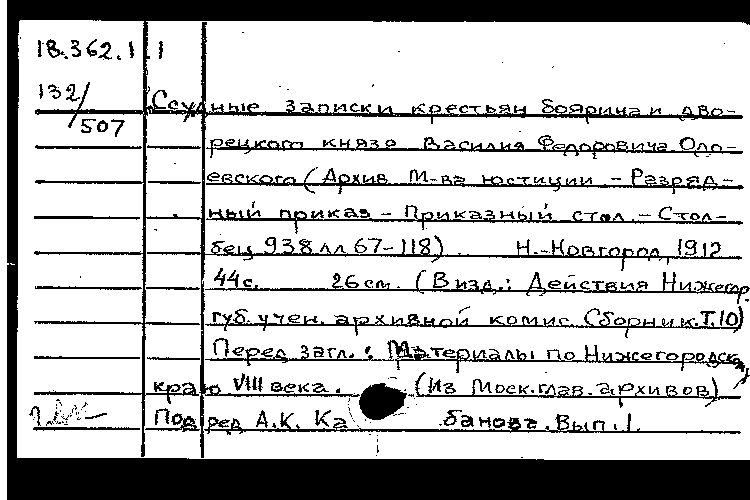 18.362.1.1
132/507
Ссудные записки крестьян боярина и дво-
рецкого князя Василия Федоровича Одо-
евского (Архив М-ва юстиции - Разряд-
ный приказ - Приказный стол. - Стол-
бец 938 лл 67-118) Н.-Новгород, 1912
44с. 26см. (В изд.: Действия Нижегор.
губ. учен. архивной комис. Сборник. Т.10)
Перед загл.: Материалы по Нижегородском
краю VIII века. (Из Моск. глав. архивов)
Под ред А.К. Ка банова. Вып. 1.